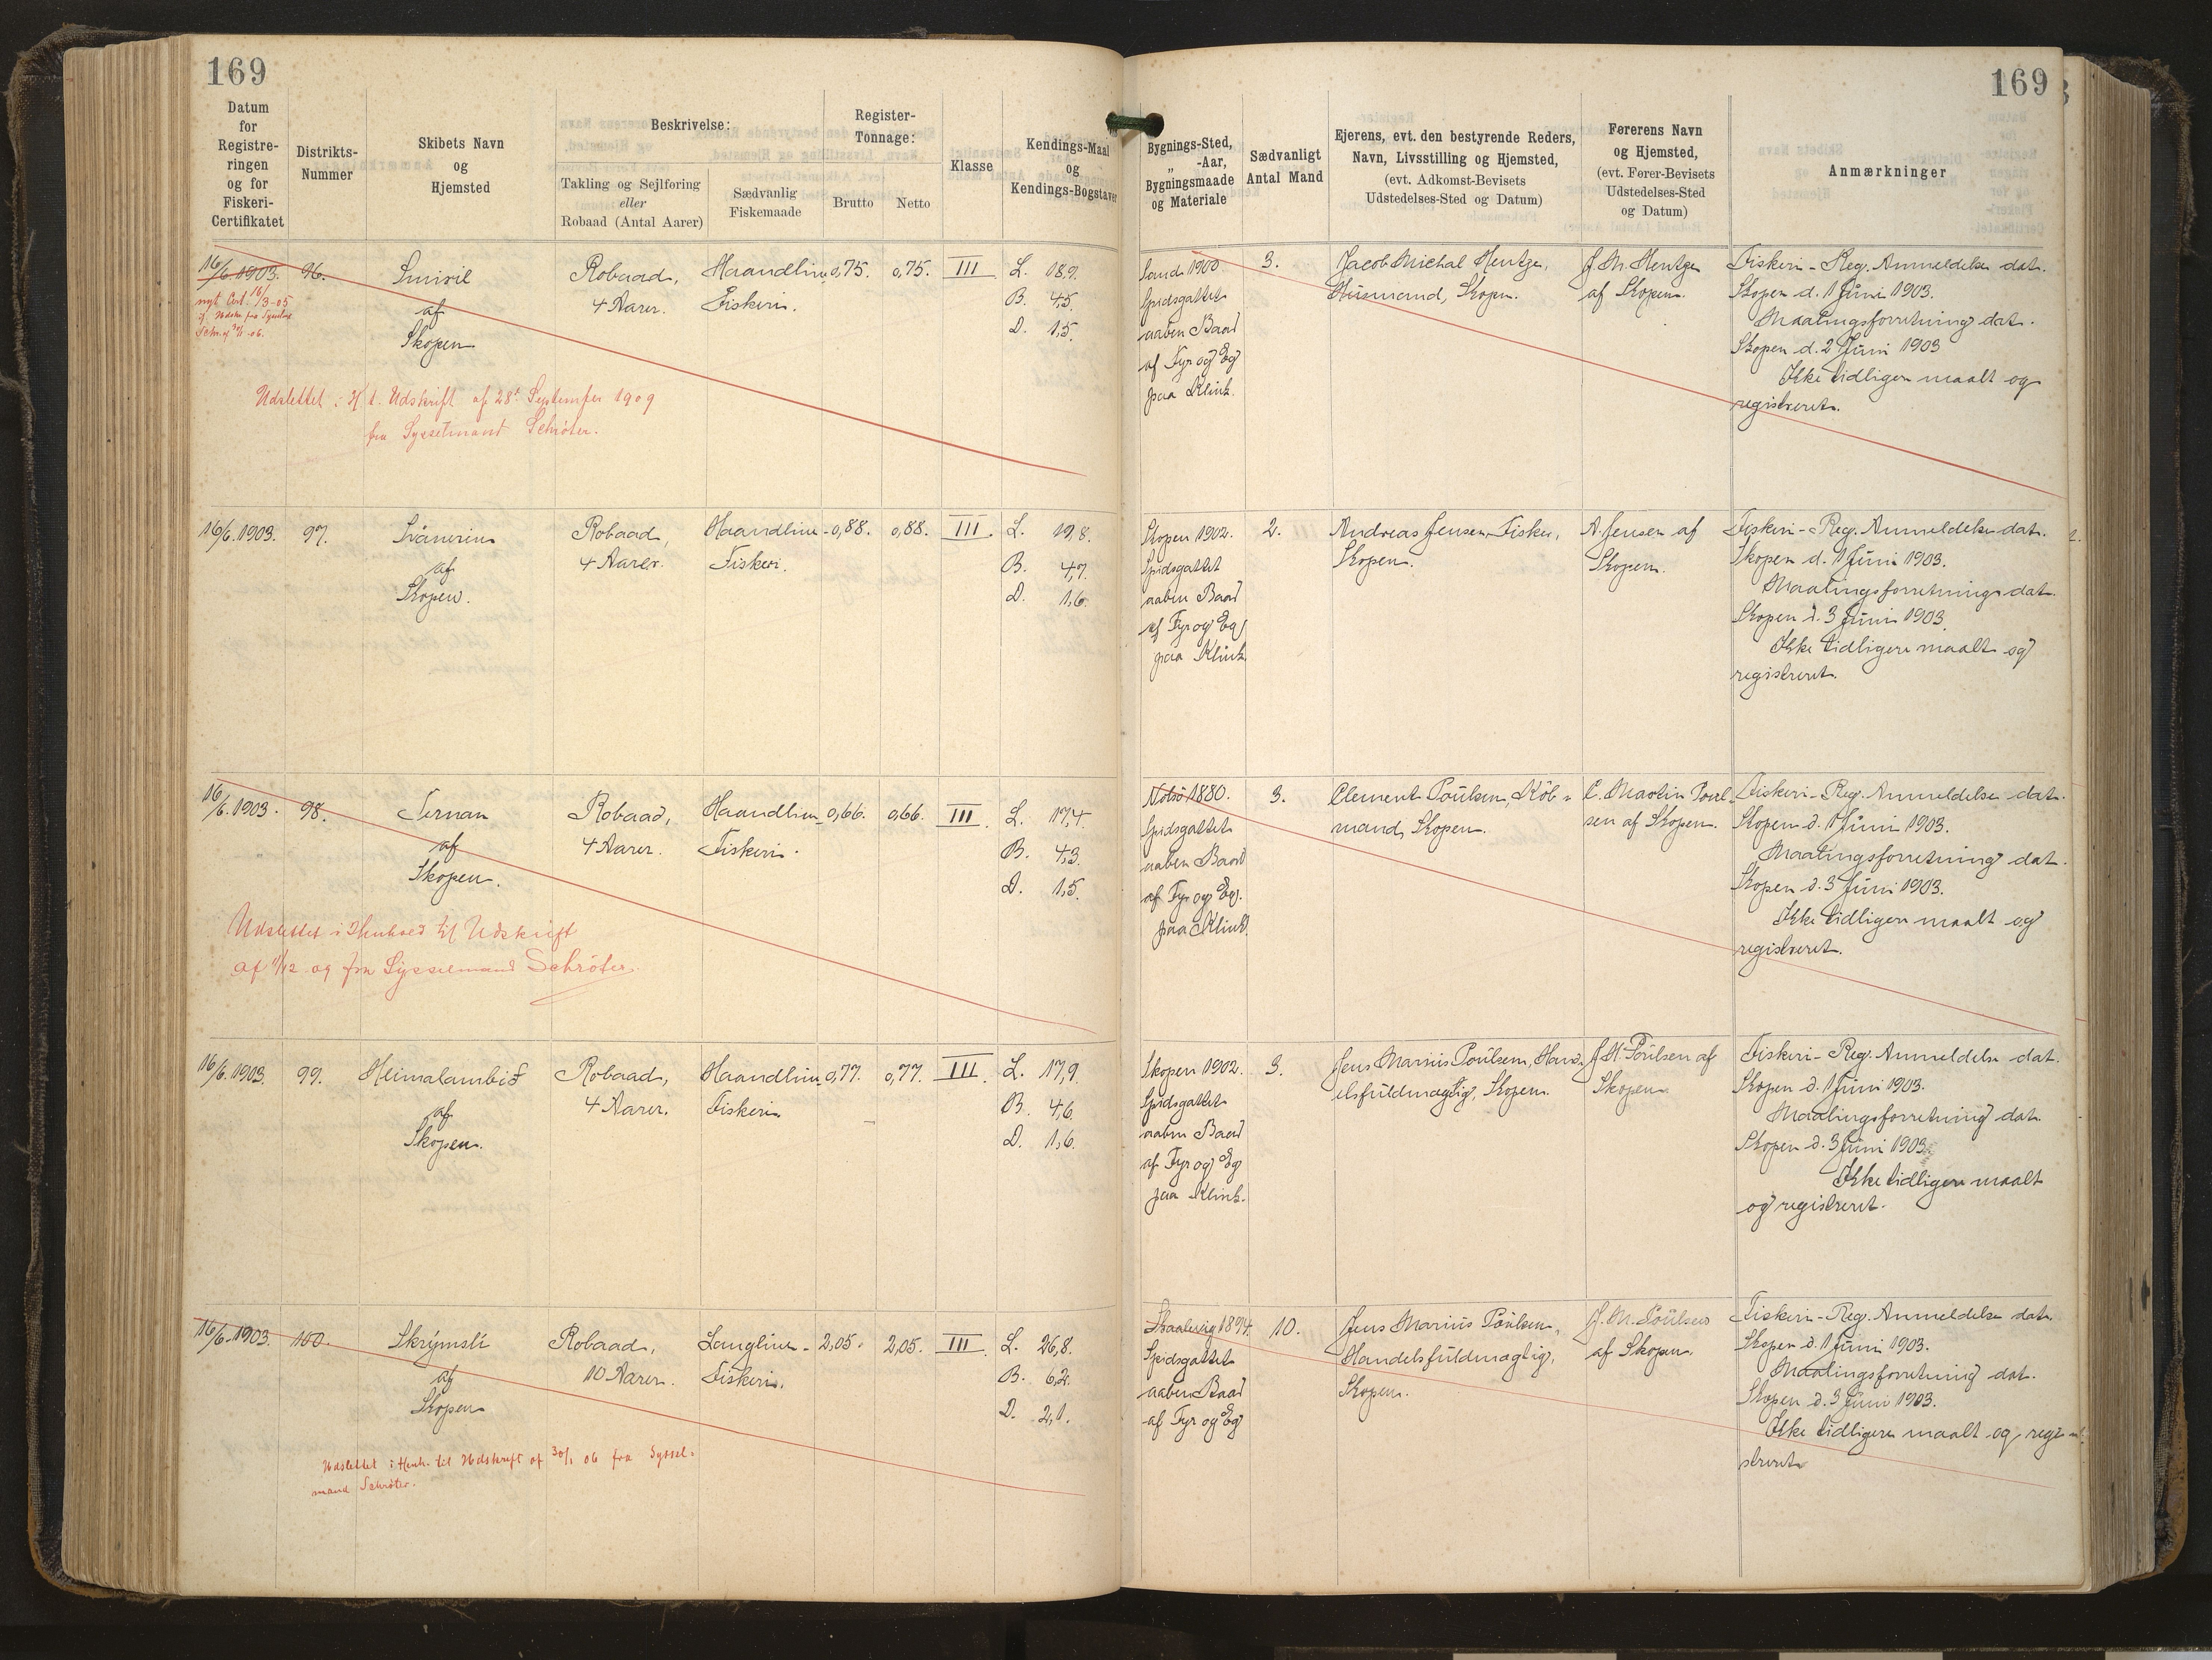 169
169
Datum
for
Registre-
ringen
og for
Fiskeri-
Certifikatet
Distrikts-
Nummer
Skibets Navn
og
Hjemsted
Beskrivelse:
Takling og Sejlføring
eller
Robaad (Antal Aarer)
Sædvanlig
Fiskemaade
Register-
Tonnage:
Brutto
Netto
Klasse
Kendings-Maal
og
Kendings-Bogstaver
Bygnings-Sted,
„ -Aar,
Bygningsmaade
og Materiale
Sædvanligt
Antal Mand
Ejerens, evt. den bestyrende Reders,
Navn, Livsstilling og Hjemsted,
(evt. Adkomst-Bevisets
Udstedelses-Sted og Datum)
Førerens Navn
og Hjemsted,
(evt. Fører-Bevisets
Udstedelses-Sted
og Datum)
Anmærkninger
16/6. 1903.
nyt Cert. 16/3-05
Schr. af 30/1-06.
96.
Smiril
af
Skopen
Robaad,
4 Aarer.
Haandline-
Fiskeri.
0,75.
0,75.
III
L. 18,9.
B. 4,5.
D. 1,5.
Sand 1900
Spidsgattet
aaben Baad
af Fyr og Eg
paa Klink.
3.
Jacob Michal Hentze,
Husmand, Skopen.
J. M. Hentze
af Skopen.
Fiskeri-Reg. Anmeldelse dat.
Skopen d. 1 Juni 1903.
Maalingsforretning dat.
Skopen d. 2 Juni 1903
Ikke tidligere maalt og
registreret.
Udslettet i H. t. Udskrift af 28' September 1909
fra Sysselmand Schrøter.
16/6. 1903.
97.
Svanurin
af
Skopen.
Robaad,
4 Aarer.
Haandline-
Fiskeri.
0,88.
0,88.
III.
L. 19,8.
B. 4,7.
D. 1,6.
Skopen 1902.
Spidsgattet
aaben Baad
af Fyr og Eg
paa Klink.
2.
Andreas Jensen, Fisker,
Skopen.
A. Jensen af
Skopen.
Fiskeri-Reg. Anmeldelse dat.
Skopen d. 1 Juni 1903.
Maalingsforretning dat.
Skopen d. 3 Juni 1903.
Ikke tidligere maalt og
registreret.
16/6. 1903.
98.
Ternan
af
Skopen.
Robaad,
4 Aarer.
Haandline-
Fiskeri.
0,66.
0,66.
III.
L. 17,4.
B. 4,3.
D. 1,5.
Nolsø 1880.
Spidsgattet
aaben Baad
af Fyr og Eg.
paa Klink.
3.
Clement Poulsen, Køb-
mand, Skopen.
C. Martin Poul-
sen af Skopen.
Fiskeri-Reg. Anmeldelse dat.
Skopen d. 1 Juni 1903.
Maalingsforretning dat.
Skopen d. 3 Juni 1903.
Ikke tidligere maalt og
registreret.
Udslettet i Henhold til Udskrift
af 11/12 09 fra Sysselmand Schrøter.
16/6. 1903.
99.
Heimalambið
af
Skopen.
Robaad,
4 Aarer.
Haandline
Fiskeri.
0,77.
0,77.
III.
L. 17,9
B. 4,6
D. 1,6.
Skopen 1902.
Spidsgattet
aaben Baad
af Fyr og Eg
paa Klink.
3.
Jens Marius Poulsen, Hand-
elsfuldmægtig, Skopen.
J. M. Poulsen af
Skopen.
Fiskeri-Reg. Anmeldelse dat.
Skopen d. 1 Juni 1903.
Maalingsforretning dat.
Skopen d. 3 Juni 1903.
Ikke tidligere maalt
og registreret.
16/6. 1903.
100.
Skrýmsli
af
Skopen
Robaad,
10 Aarer.
Langline-
Fiskeri.
2,05.
2,05.
III.
L. 26,8.
B. 6,2.
D. 2,1.
Skaalevig 1894.
Spidsgattet
aaben Baad
af Fyr og Eg
10.
Jens Marius Poulsen,
Handelsfuldmægtig,
Skopen.
J. M. Poulsen
af Skopen.
Fiskeri-Reg. Anmeldelse dat.
Skopen d. 1 Juni 1903.
Maalingsforretning dat.
Skopen d. 3 Juni 1903.
Ikke tidligere maalt og regi-
streret
Udslettet i Henh. til Udskrift af 30/1 06 fra Syssel-
mand Schrøter.